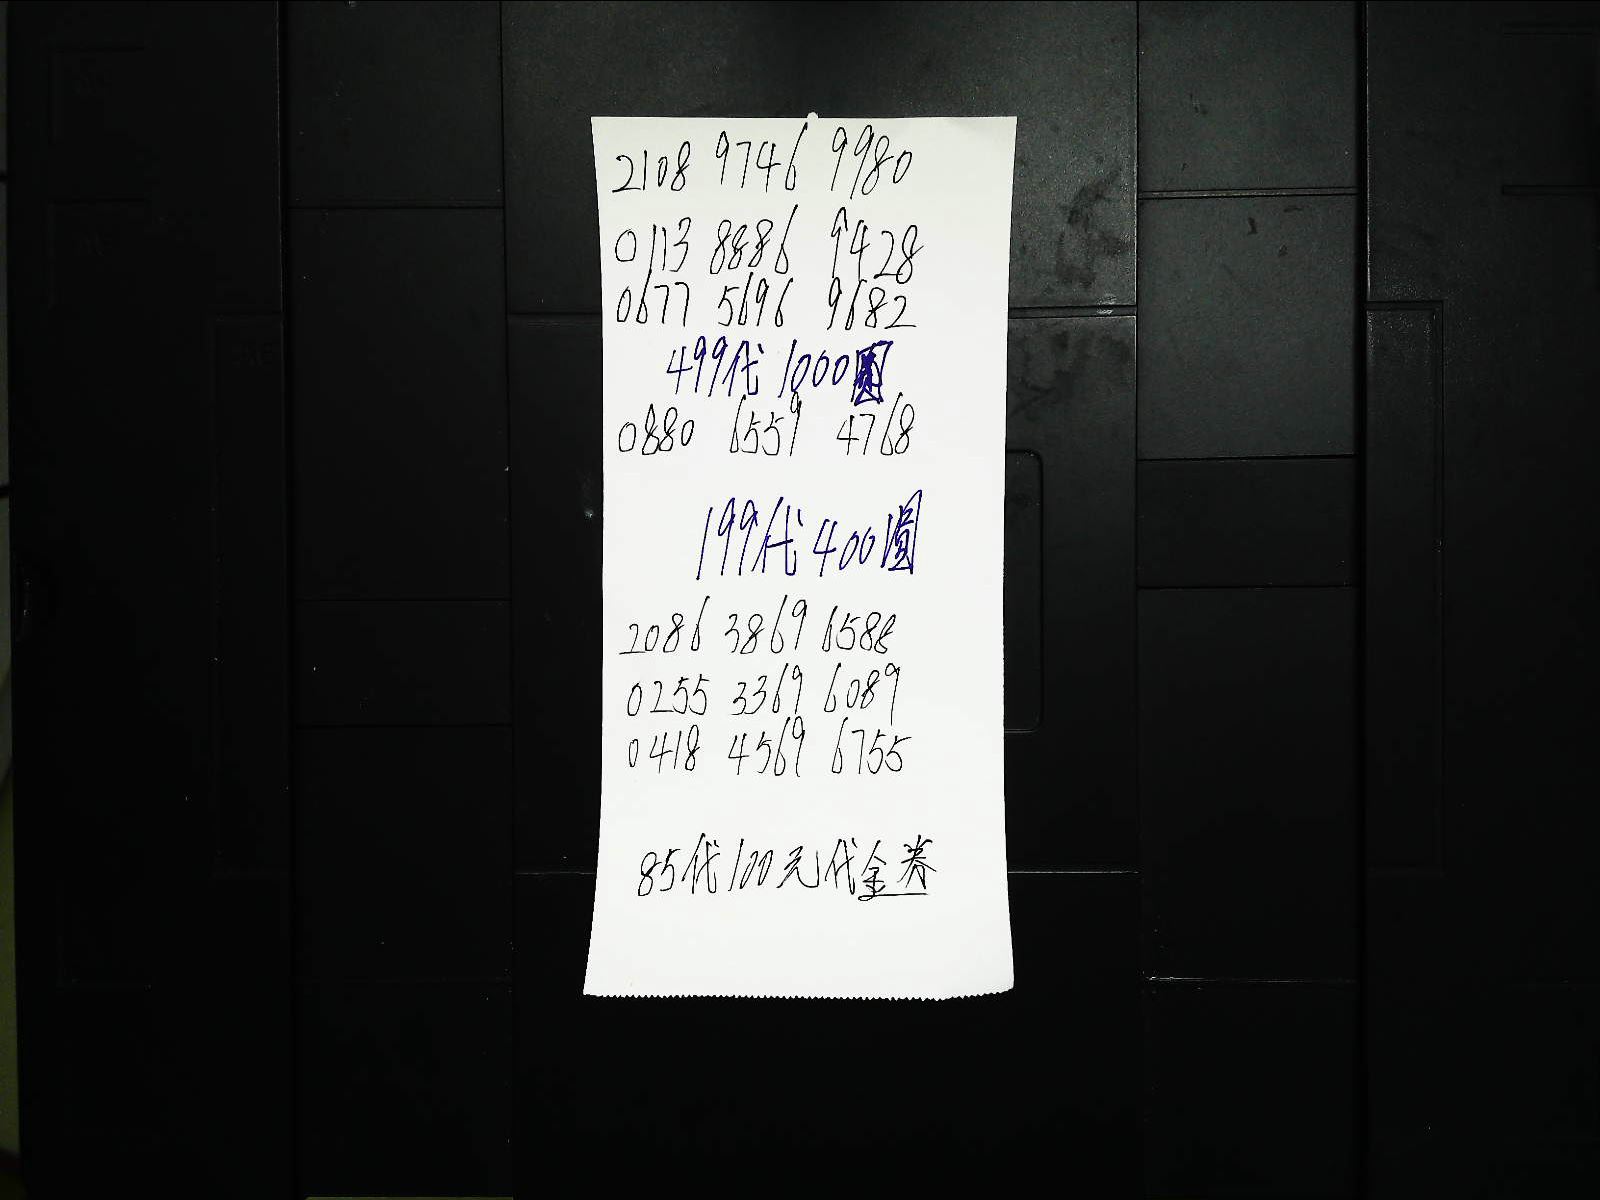 2108 9746 9980
0113 8886 9428
0677 5696 9682
499代1000圆
0880 6559 4768
199代400圆
2086 3869 6588
0255 3369 6089
0418 4569 6755
85代100元代金券